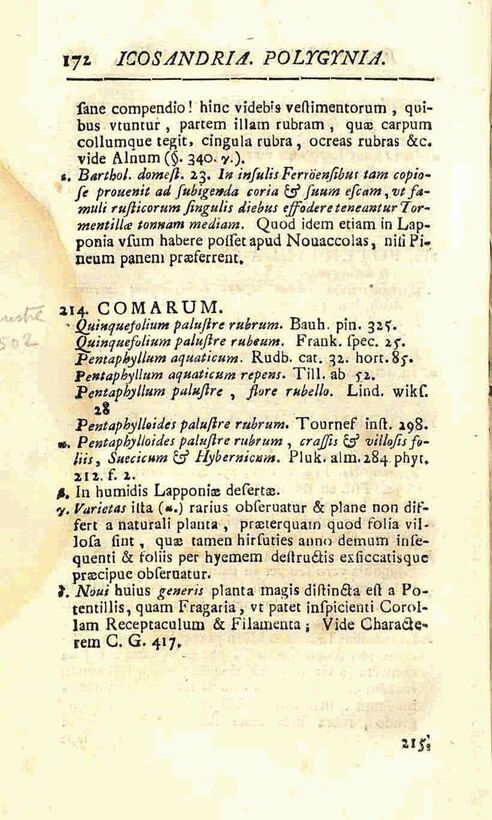 172 ICOSANDRIA. POLYGYNIA.
ſane compendio! hinc videbis veſtimentorum , qui-
bus vtuntur , partem illam rubram , quæ carpum
collumque tegit, cingula rubra , ocreas rubras &c.
vide Alnum (§. 340. γ.).
ε. Barthol. domeſt. 23. In inſulis Ferröenſibus tam copio-
ſe prouenit ad ſubigenda coria & ſuum eſcam, vt fa-
muli ruſticorum ſingulis diebus effodere teneantur Tor-
mentillæ tonnam mediam. Quod idem etiam in Lap-
ponia vſum habere poſſet apud Nouaccolas, niſi Pi-
neum panem præferrent.
214. COMARUM.
Quinquefolium paluſtre rubrum. Bauh. pin. 325.
Quinquefolium paluſtre rubeum. Frank. ſpec. 25.
Pentaphyllum aquaticum. Rudb. cat. 32. hort. 85.
Pentaphyllum aquaticum repens. Till. ab 52.
Pentaphyllum paluſtre , flore rubello. Lind. wikſ.
28
Pentaphylloides paluſtre rubrum. Tournef inſt. 298.
α. Pentaphylloides paluſtre rubrum , craſſis & villoſis fo-
liis, Suecicum & Hybernicum. Pluk. alm. 284 phyt.
212. f. 2.
β. In humidis Lapponiæ deſertæ.
γ. Varietas iſta (α.) rarius obſeruatur & plane non dif-
fert a naturali planta , præterquam quod folia vil-
loſa ſint , quæ tamen hirſuties anno demum inſe-
quenti & foliis per hyemem deſtructis exſiccatisque
præcipue obſeruatur.
δ. Noui huius generis planta magis diſtincta eſt a Po-
tentillis, quam Fragaria, vt patet inſpicienti Corol-
lam Receptaculum & Filamenta ; Vide Characte-
rem C. G. 417.
502
215.